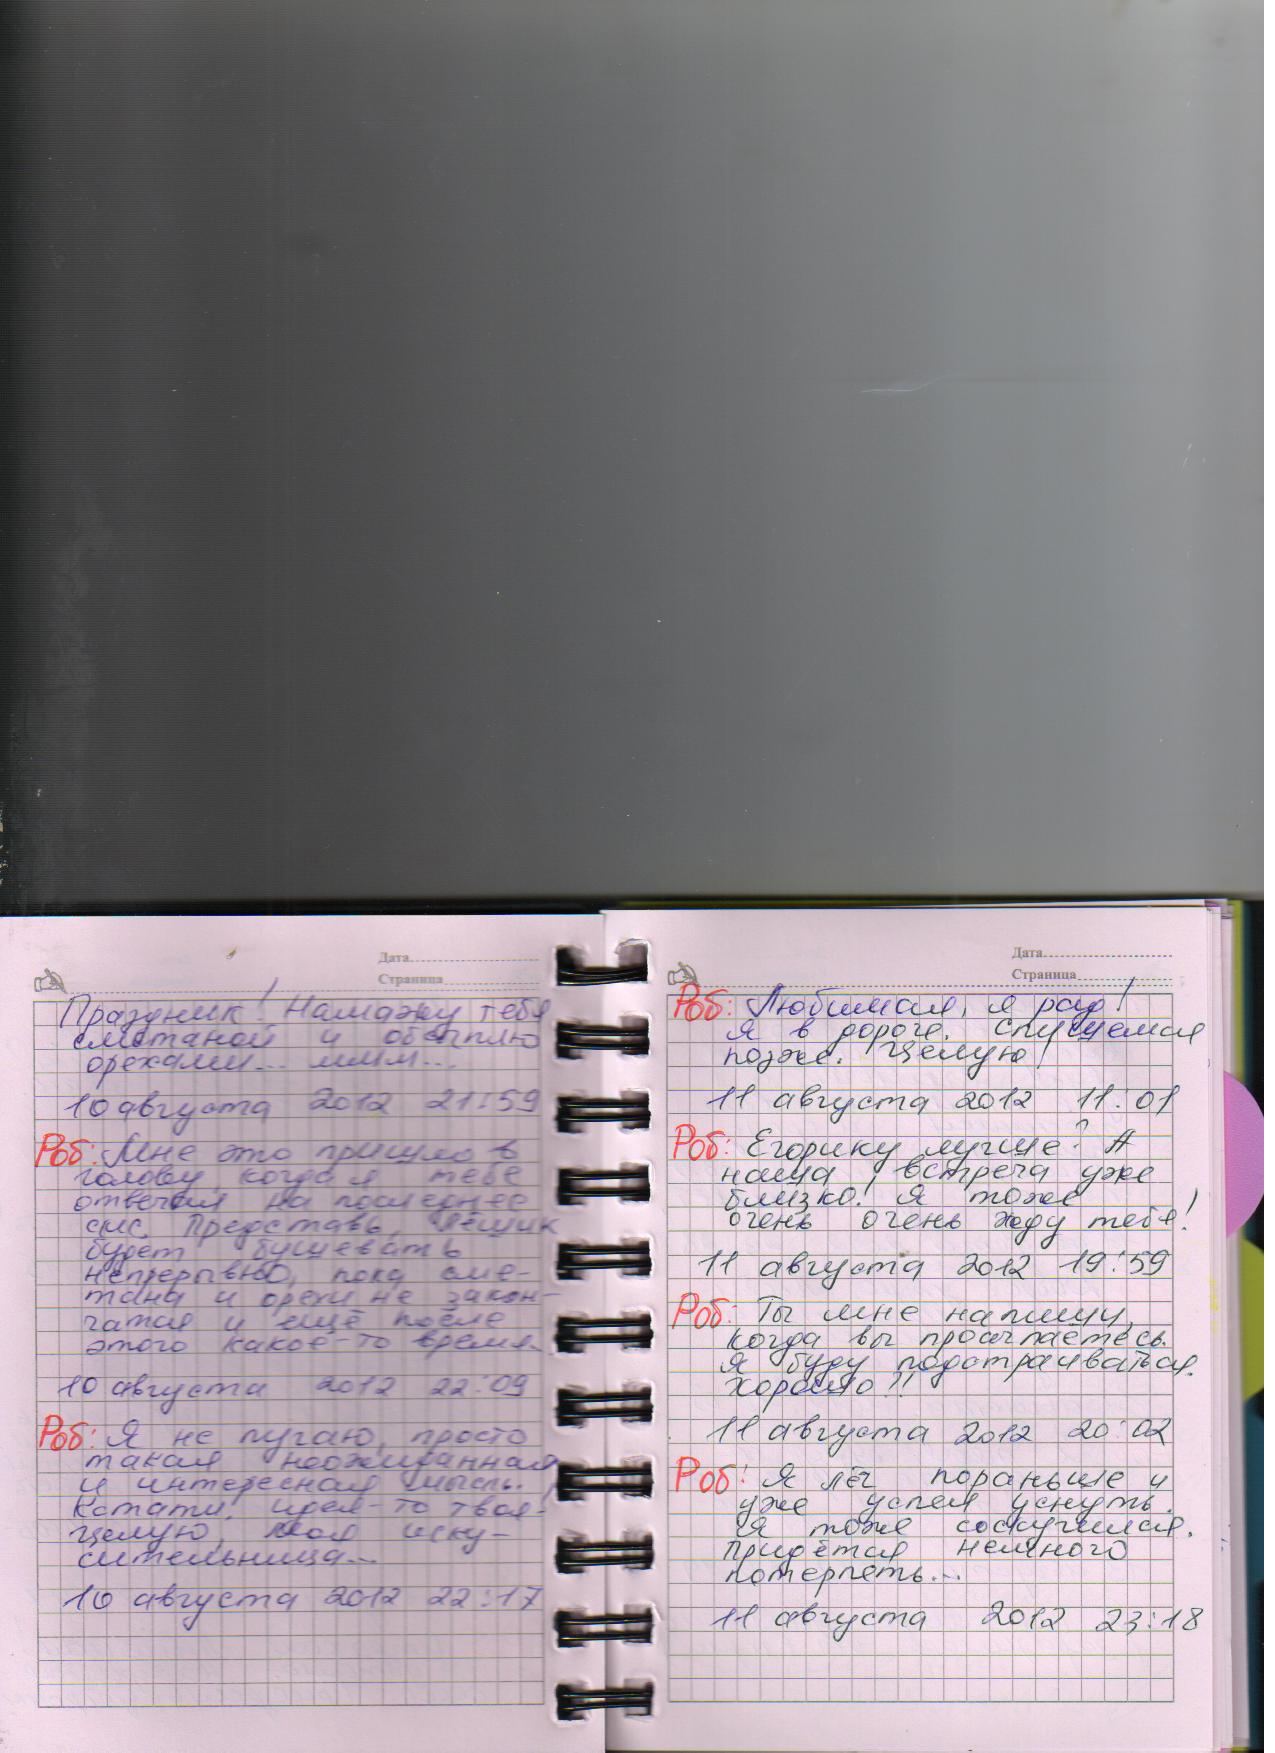 Дата
Страница
Праздник! Намажу тебя
сметаной и обсыплю
орехами... ммм...
10 августа 2012 21:59
Роб: Мне это пришло в
голову когда я тебе
отвечал на последнее
смс. Представь, Лёшик
будет бушевать
непрерывно, пока сме-
тана и орехи не закон-
чатся и ещё после
этого какое-то время.
10 августа 2012 22:09
Роб: Я не пугаю, просто
такая неожиданная
и интересная мысль.
Кстати, идея-то твоя.
Целую, моя иску-
сительница...
10 августа 2012 22:17
Дата
Страница
Роб: Любимая, я рад!
Я в дороге. Спишемся
позже. Целую!
11 августа 2012 11:01
Роб: Егорику лучше? А
наша встреча уже
близко! Я тоже
очень очень жду тебя!
11 августа 2012 19:59
Роб: Ты мне напиши,
когда вы просыпаетесь.
Я буду подстраиваться.
Хорошо?!
11 августа 2012 20:02
Роб: Я лёг пораньше и
уже успел уснуть.
Я тоже соскучился.
Придётся немного
потерпеть...
11 августа 2012 23:18